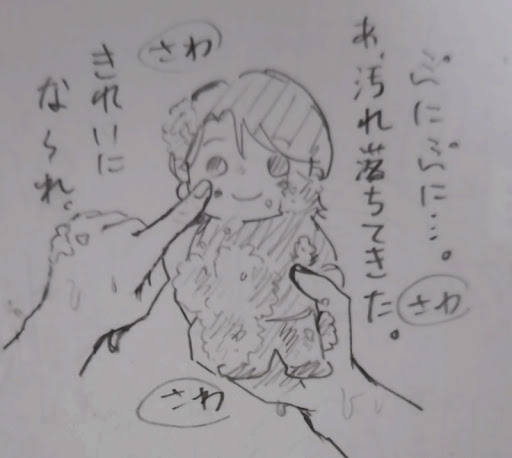 ぷにぷに…。
あ、汚れ落ちてきた。
さわ
さわ
きれいに
なぁれ。
さわ